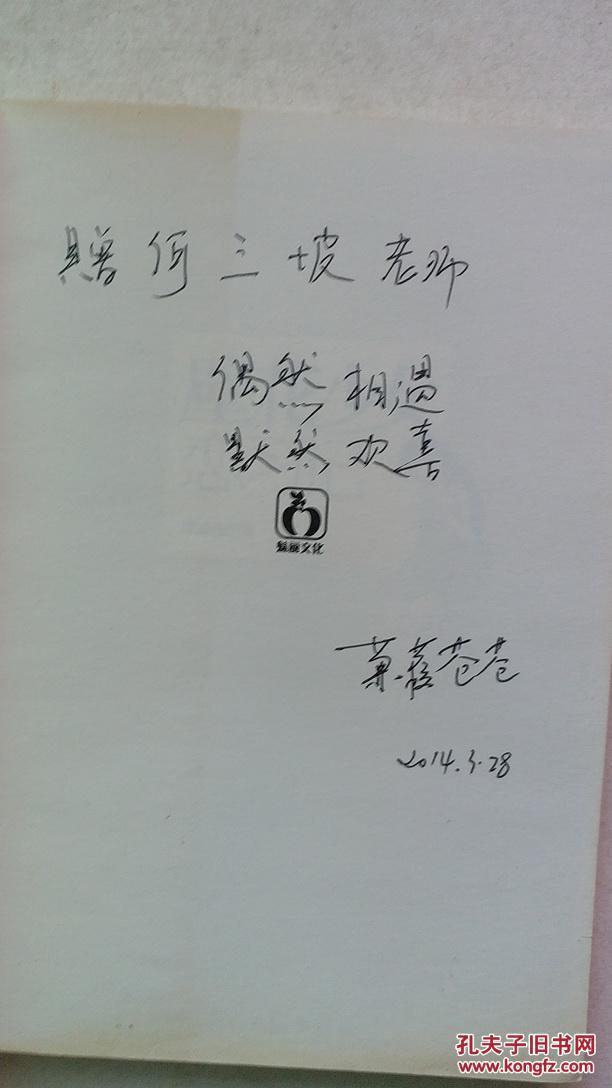 赠何三坡老师
偶然相遇
默然欢喜
魅丽文化
蒹葭苍苍
2014.3.28
孔夫子旧书网
www.kongfz.com